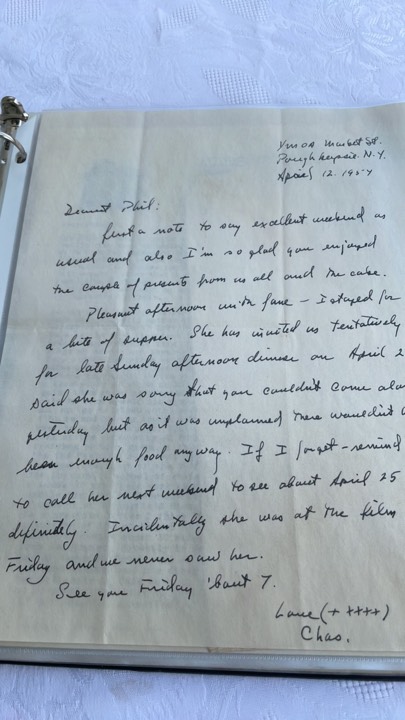 YMCA Market St.
Poughkeepsie. N.Y.
April 12. 1954
Dearest Phil:
Just a note to say excellent weekend as
usual and also I'm so glad you enjoyed
the couple of presents from us all and the cake.
Pleasant afternoon with Jane – I stayed for
a bite of supper. She has invited us tentatively
for late Sunday afternoon dinner on April 2
said she was sorry that you couldn't come alo
yesterday but as it was unplanned there wouldn't
been enough food anyway. If I forget – remind
to call her next weekend to see about April 25
definitely. Incidentally she was at the film
Friday and we never saw her.
See you Friday 'bout 7.
Love (+ ++++)
Chas.